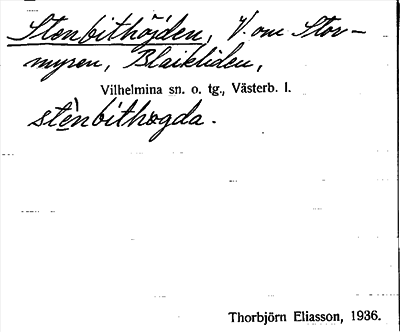 Stenbithöjden, V. om Stor-
myren, Blaikliden,
Vilhelmina sn. o. tg., Västerb. l.
stènbithøgda.
Thorbjörn Eliasson, 1936.